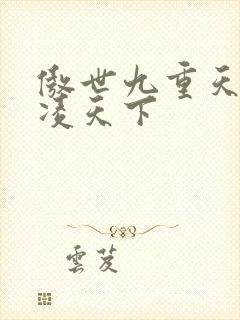 傲世九重天
凌天下
雲芨